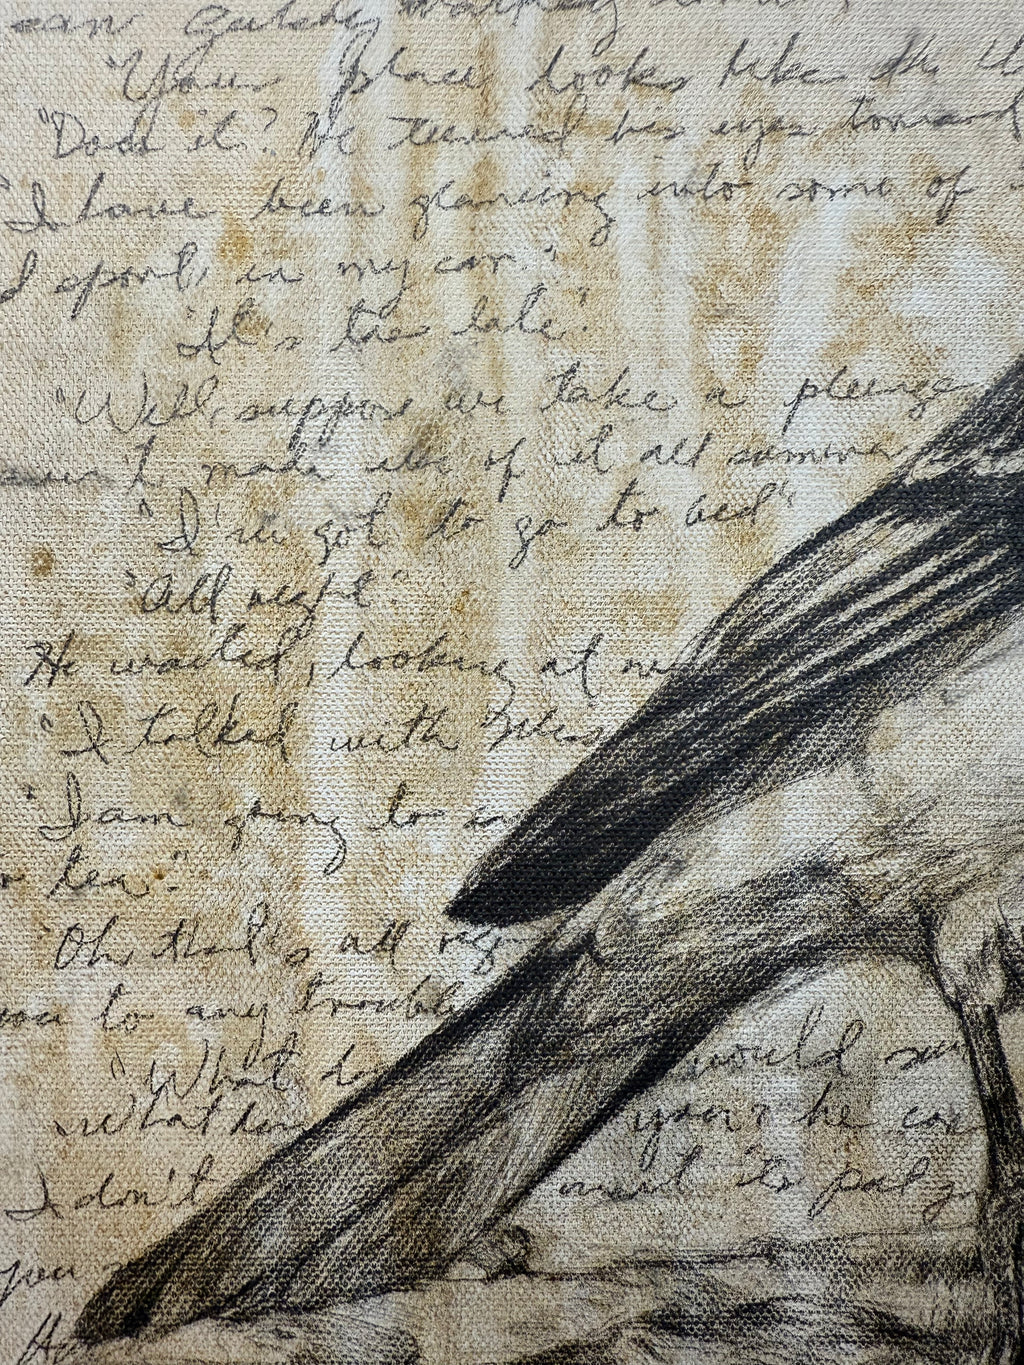 saw Gatsby walking
"Your place looks like the
"Does it?" He turned his eyes toward
"I have been glancing into some of
sport, in my car."
"It's too late."
"Well, suppose we take a plunge
made use of it all summer
"I've got to go to bed"
"All right."
He waited, looking at
"I talked with Miss
"I am going to
her."
"Oh, that's all
you to any trouble
"What would
What day you? he
I don't want to put
you